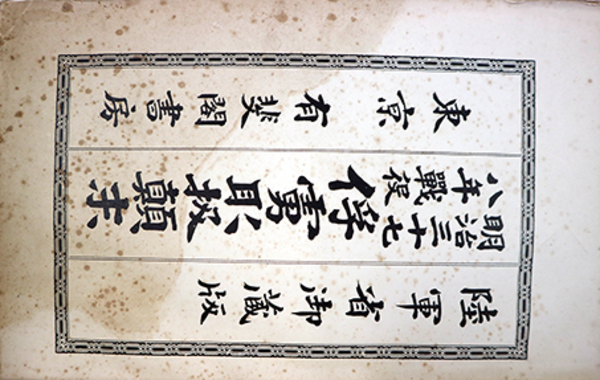 陸軍省御藏版
明治三十七
八年戰役
俘虜取扱顛末
東京有斐閣書房